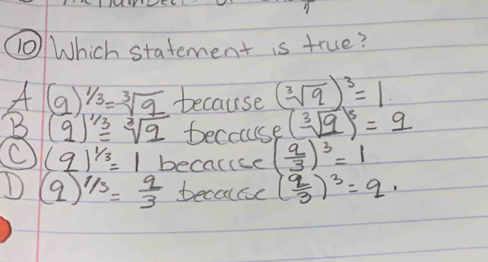 ⑩ Which statement is true?
A (9)^1/3 = ∛9 because (∛9)^3 = 1.
B (9)^1/3 = ∛9 because (∛9)^3 = 9
Ⓒ (9)^1/3 = 1 because (9/3)^3 = 1
D (9)^1/3 = 9/3 because (9/3)^3 = 9.